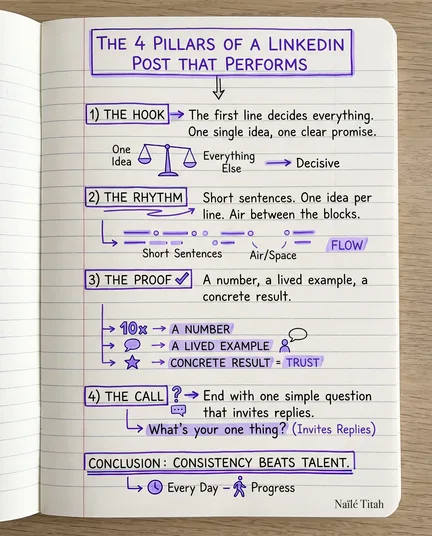 THE 4 PILLARS OF A LINKEDIN
POST THAT PERFORMS
1) THE HOOK → The first line decides everything.
One single idea, one clear promise.
One
Idea
Everything
Else
→ Decisive
2) THE RHYTHM
Short sentences. One idea per
line. Air between the blocks.
Short Sentences
Air/Space
FLOW
3) THE PROOF ✓
A number, a lived example, a
concrete result.
10x → A NUMBER
→ A LIVED EXAMPLE
→ CONCRETE RESULT = TRUST
4) THE CALL ? → End with one simple question
that invites replies.
What's your one thing? (Invites Replies)
CONCLUSION: CONSISTENCY BEATS TALENT.
Every Day – Progress
Naïlé Titah